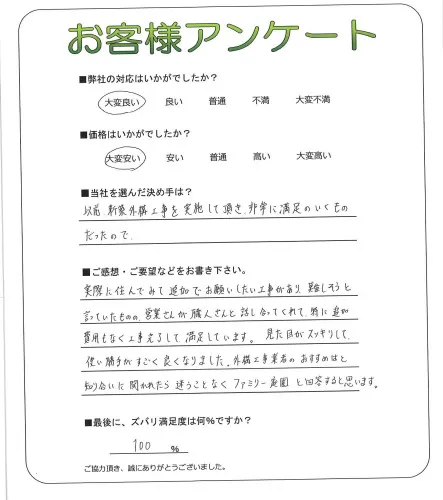 お客様アンケート
■弊社の対応はいかがでしたか？
大変良い 良い 普通 不満 大変不満
■価格はいかがでしたか？
大変安い 安い 普通 高い 大変高い
■当社を選んだ決め手は？
以前 新築外構工事を実施して頂き、非常に満足のいくもの
だったので。
■ご感想・ご要望などをお書き下さい。
実際に住んでみて追加でお願いしたい工事があり、難しそうと
言っていたものの、営業さんが職人さんと話し合ってくれて、特に追加
費用もなく工事えらして満足しています。見た目がスッキリして、
使い勝手がすごく良くなりました。外構工事業者のおすすめはと
知り合いに聞かれたら迷うことなくファミリー庭園と回答すると思います。
■最後に、ズバリ満足度は何%ですか？
100 %
ご協力頂き、誠にありがとうございました。